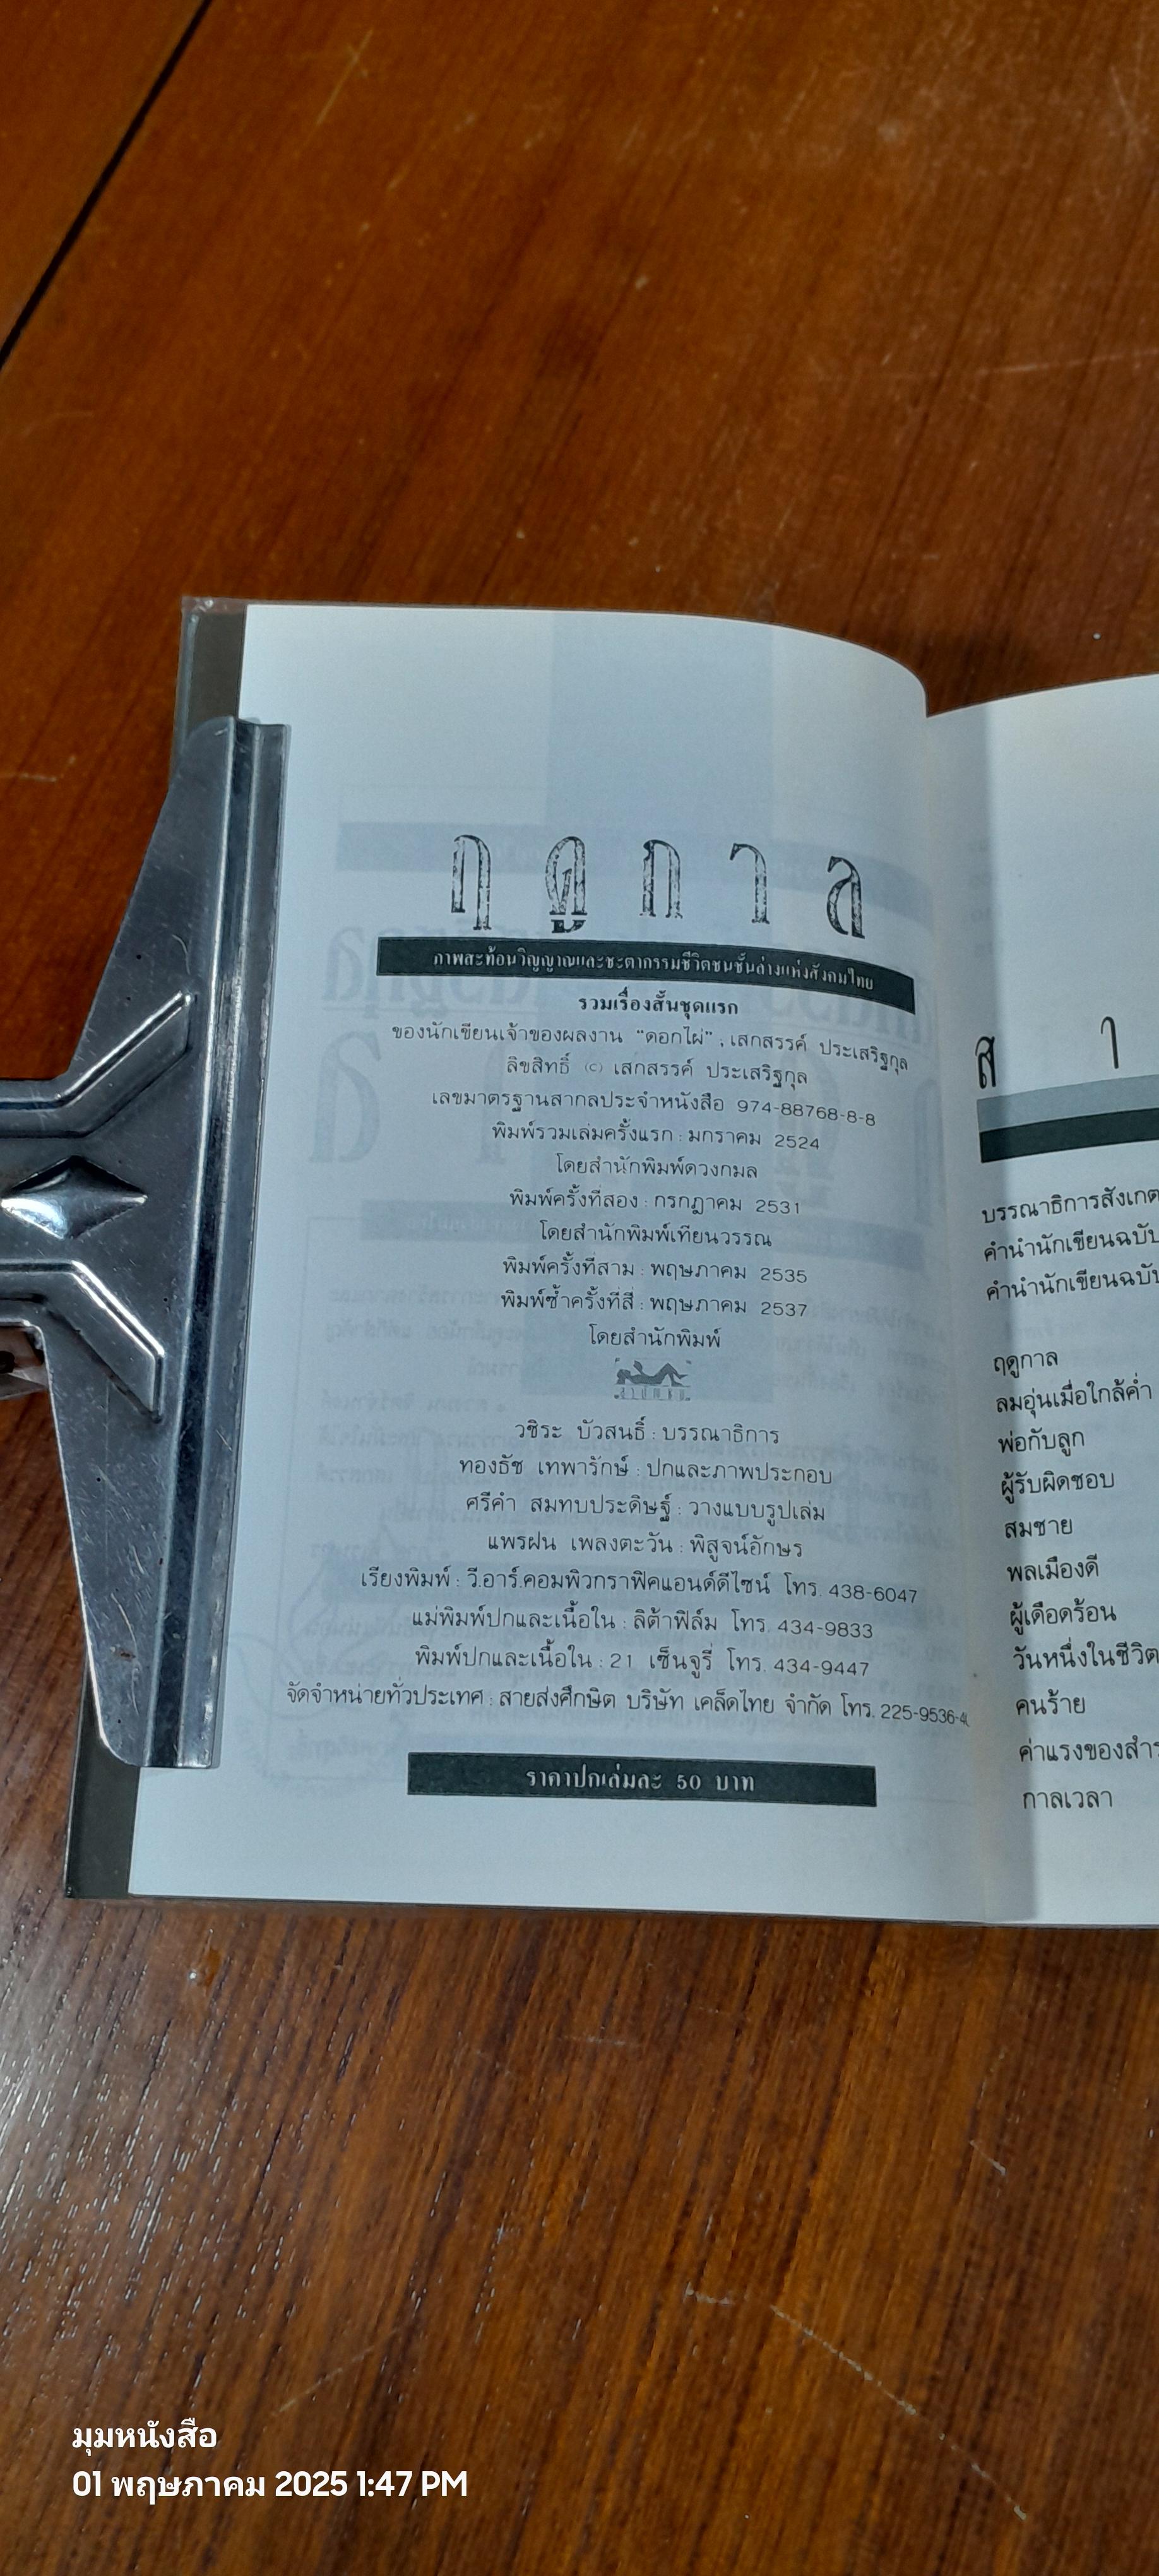 ฤดูกาล
ภาพสะท้อนวิญญาณและชะตากรรมชีวิตชนชั้นล่างแห่งสังคมไทย
รวมเรื่องสั้นชุดแรก
ของนักเขียนเจ้าของผลงาน "ดอกไผ่" ; เสกสรรค์ ประเสริฐกุล
ลิขสิทธิ์ (c) เสกสรรค์ ประเสริฐกุล
เลขมาตรฐานสากลประจำหนังสือ 974-88768-8-8
พิมพ์รวมเล่มครั้งแรก : มกราคม 2524
โดยสำนักพิมพ์ดวงกมล
พิมพ์ครั้งที่สอง : กรกฎาคม 2531
โดยสำนักพิมพ์เทียนวรรณ
พิมพ์ครั้งที่สาม : พฤษภาคม 2535
พิมพ์ซ้ำครั้งที่สี่ : พฤษภาคม 2537
โดยสำนักพิมพ์
วชิระ บัวสนธิ์ : บรรณาธิการ
ทองธัช เทพารักษ์ : ปกและภาพประกอบ
ศรีคำ สมทบประดิษฐ์ : วางแบบรูปเล่ม
แพรฝน เพลงตะวัน : พิสูจน์อักษร
เรียงพิมพ์ : วี.อาร์.คอมพิวกราฟิคแอนด์ดีไซน์ โทร. 438-6047
แม่พิมพ์ปกและเนื้อใน : ลิต้าฟิล์ม โทร. 434-9833
พิมพ์ปกและเนื้อใน : 21 เซ็นจูรี่ โทร. 434-9447
จัดจำหน่ายทั่วประเทศ : สายส่งศึกษิต บริษัท เคล็ดไทย จำกัด โทร. 225-9536-40
ราคาปกเล่มละ 50 บาท
ส า
บรรณาธิการสังเกต
คำนำนักเขียนฉบับ
คำนำนักเขียนฉบับ
ฤดูกาล
ลมอุ่นเมื่อใกล้ค่ำ
พ่อกับลูก
ผู้รับผิดชอบ
สมชาย
พลเมืองดี
ผู้เดือดร้อน
วันหนึ่งในชีวิต
คนร้าย
ค่าแรงของสำร
กาลเวลา
มุมหนังสือ
01 พฤษภาคม 2025 1:47 PM